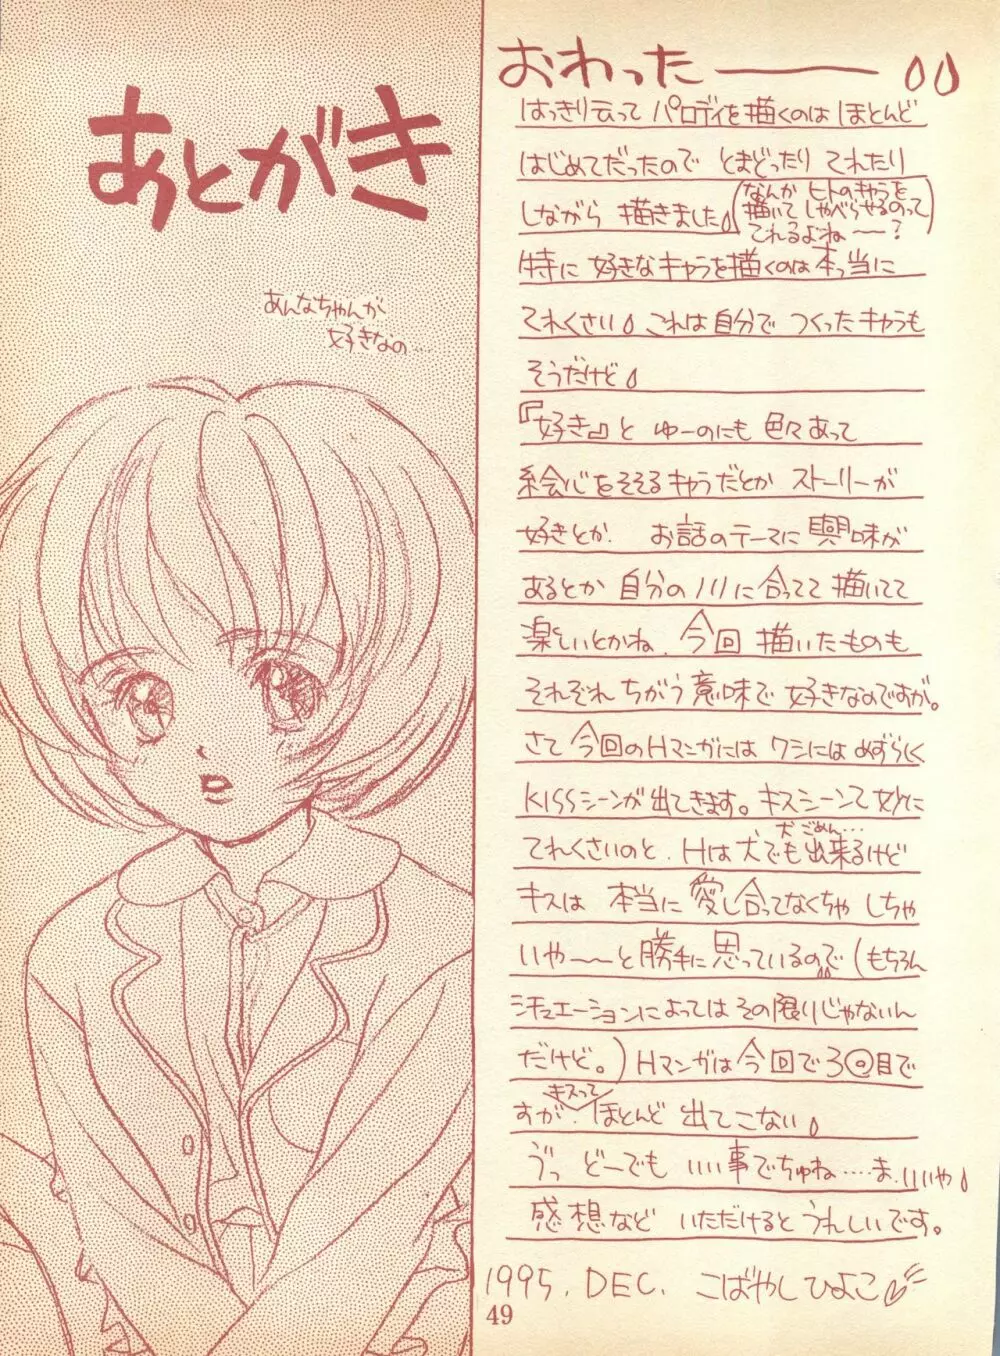 あとがき
あんなちゃんが
好きなの……
おわったーーー
はっきり云って パロディを描くのは ほとんど
はじめてだったので とまどったり てれたり
しながら 描きました
(なんか ヒトのキャラを
描いて しゃべらせるのって
てれるよね〜?)
特に 好きなキャラを描くのは本っ当に
てれくさい これは自分で つくったキャラも
そうだけど
『好き』と ゆーのにも 色々あって
絵心をそそるキャラだとか ストーリーが
好きとか. お話のテーマに興味が
あるとか 自分のノリに合ってて描いてて
楽しいとかね. 今回 描いたものも
それぞれ ちがう意味で 好きなのですが。
さて 今回のHマンガには ワシには めずらしく
KISSシーンが出てきます。キスシーンて妙に
てれくさいのと. Hは犬でも出来るけど
犬ごめん…
キスは 本当に愛し合ってなくちゃ しちゃ
いや〜〜と勝手に思っているので (もちろん
シチュエーションによってはその限りじゃないん
だけど。) Hマンガは今回で3回目で
すが. キスって ほとんど 出てこない
ゔっ どーでも いい事でちゅね……ま.いいや
感想など いただけると うれしいです。
1995. DEC. こばやしひよこ
49